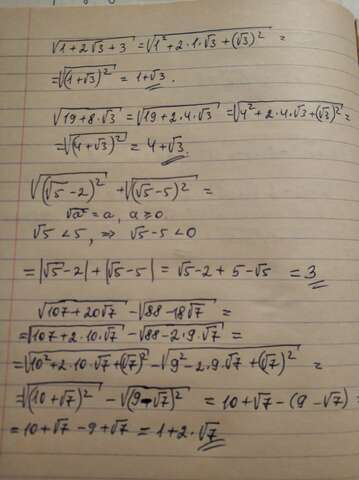 √(1+2√3+3) = √(1²+2·1·√3+(√3)²) =
= √((1+√3)²) = 1+√3.
√(19+8·√3) = √(19+2·4·√3) = √(4²+2·4·√3+(√3)²) =
= √((4+√3)²) = 4+√3.
√((√5-2)²) + √((√5-5)²) =
√a² = a, a≥0
√5 < 5, ⇒ √5-5<0
= |√5-2| + |√5-5| = √5-2+5-√5 = 3
√(107+20√7) - √(88-18√7) =
= √(107+2·10·√7) - √(88-2·9·√7) =
= √(10²+2·10·√7+(√7)²) - √(9²-2·9·√7+(√7)²) =
= √((10+√7)²) - √((9-√7)²) = 10+√7-(9-√7) =
= 10+√7-9+√7 = 1+2·√7